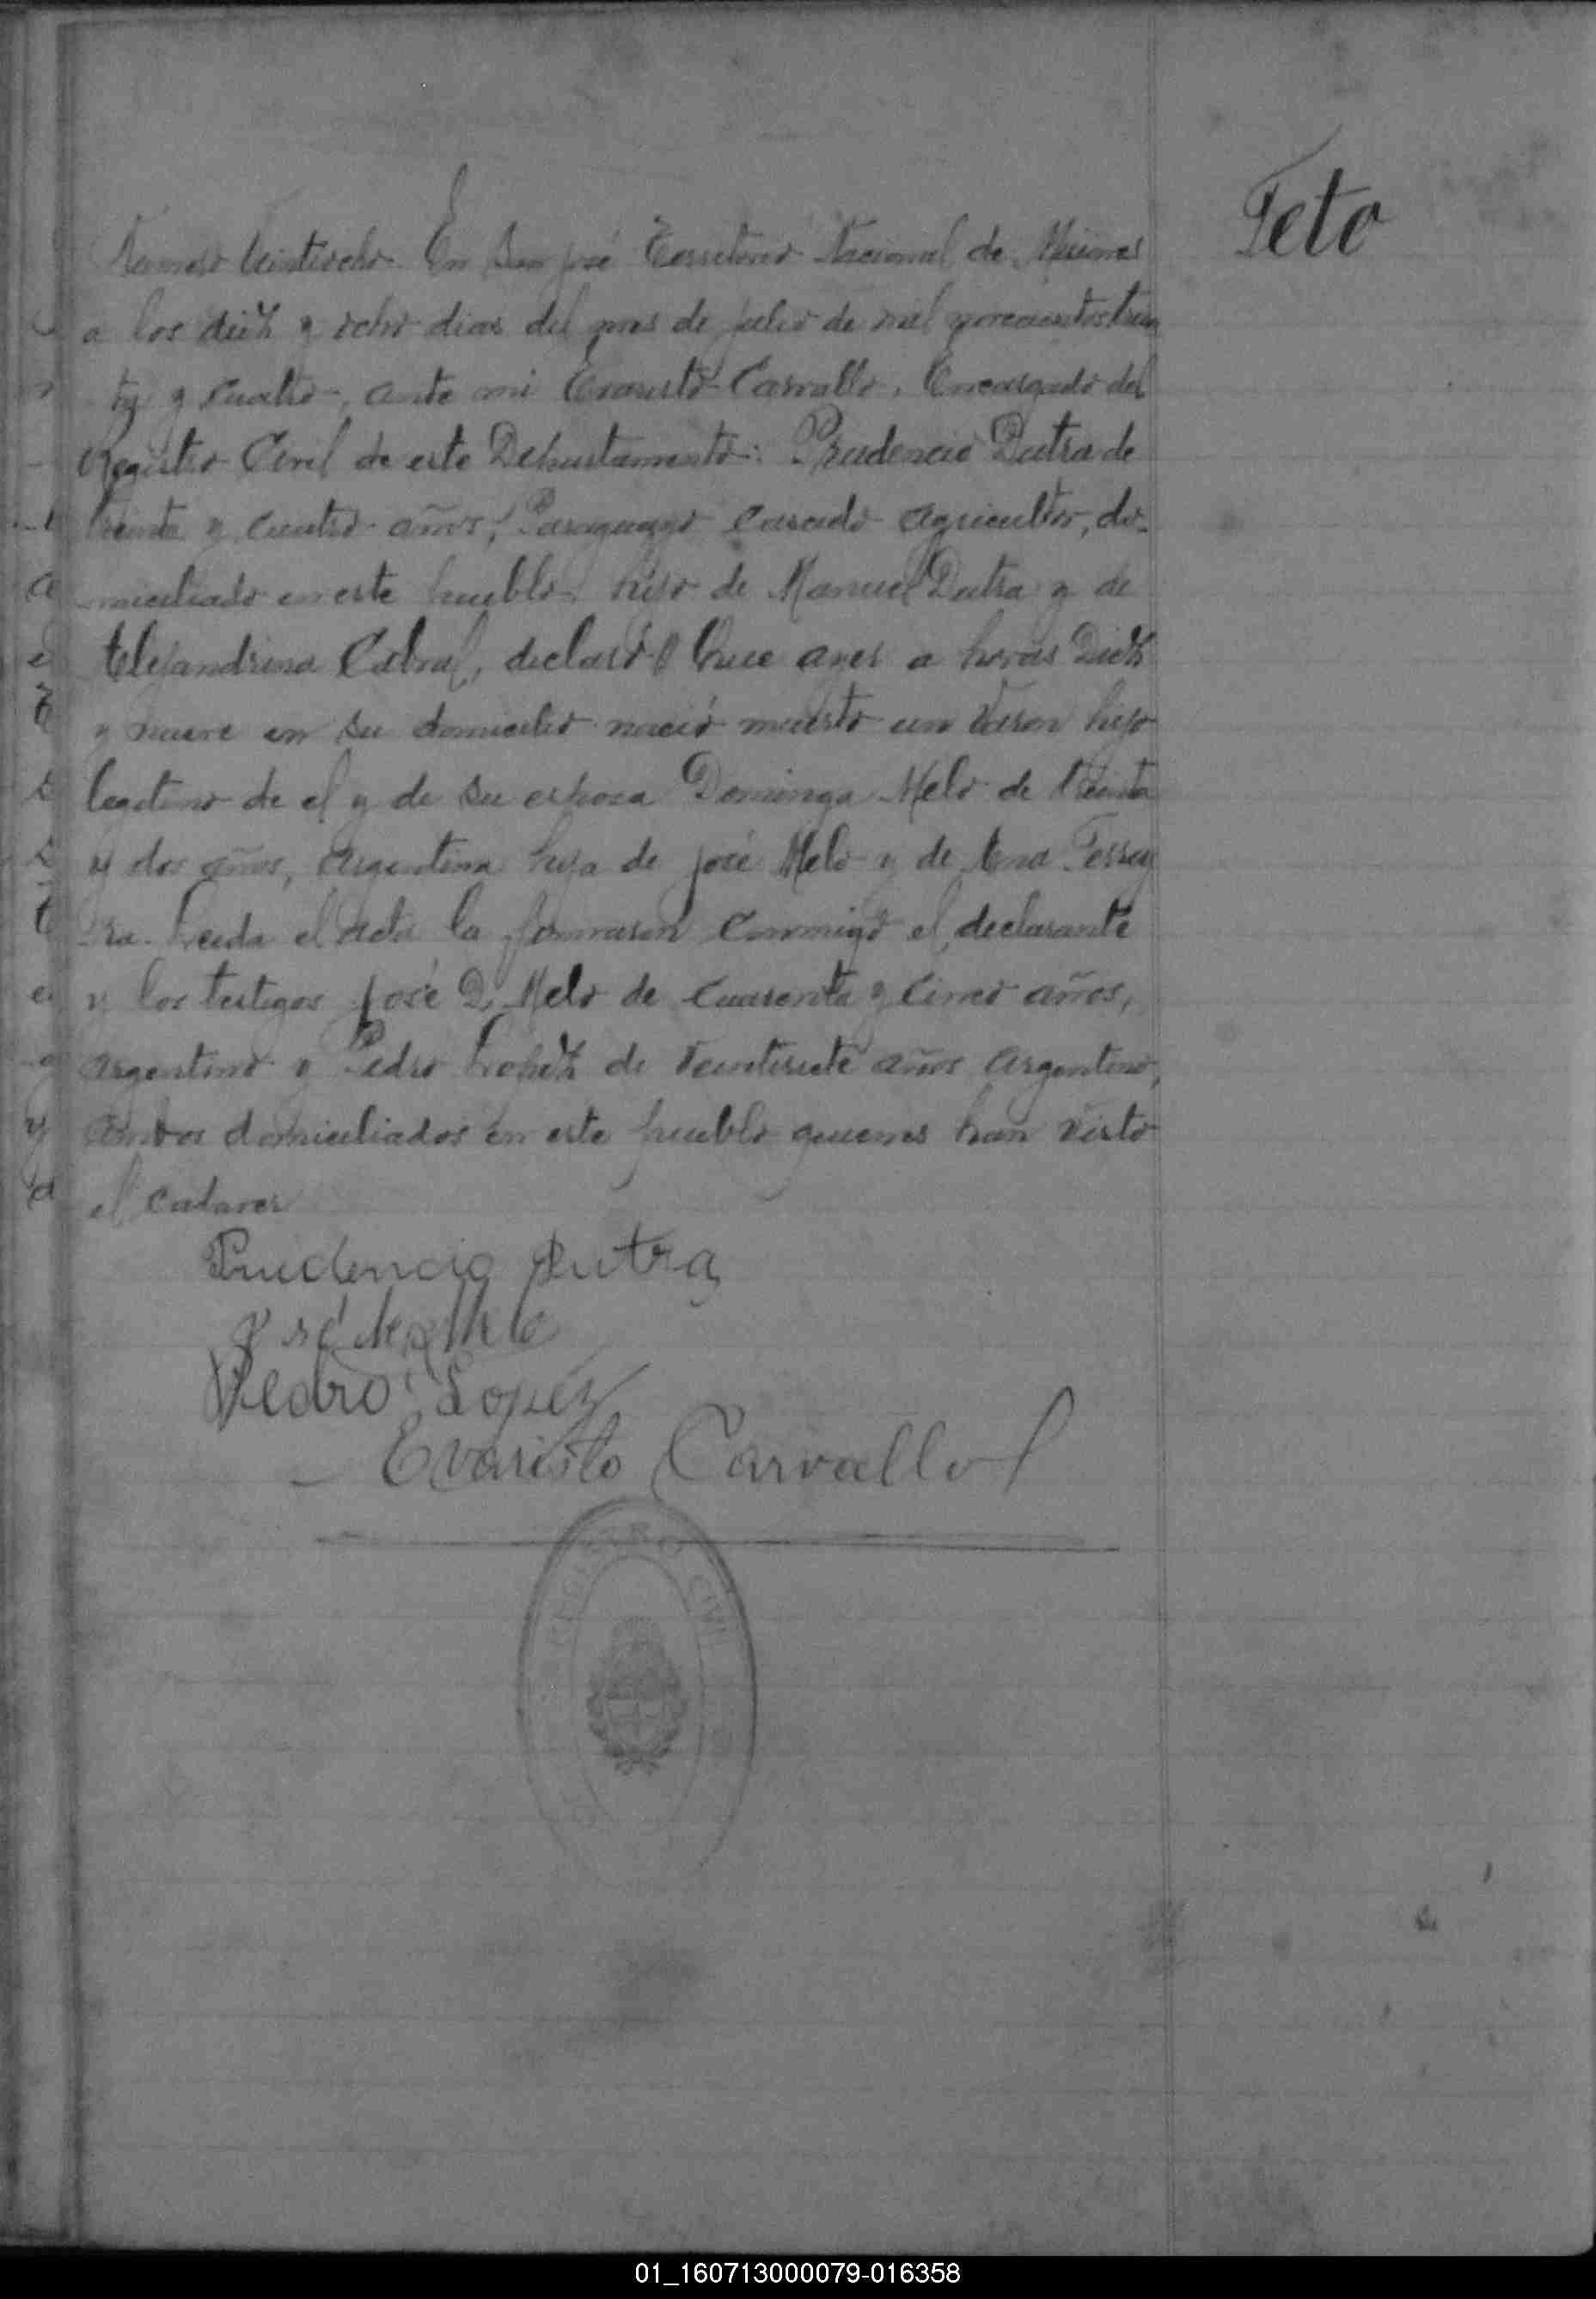 Feto
Numero Veintiocho. En San José Territorio Nacional de Misiones
a los diez y ocho dias del mes de julio de mil novecientos trein
ta y cuatro, ante mi Evaristo Carvallo, Encargado del
Registro Civil de este Departamento: Prudencio Dutra de
treinta y cuatro años, Paraguayo casado agricultor, do-
miciliado en este pueblo, hijo de Manuel Dutra y de
Alejandrina Cabral, declaró: Que ayer a horas Diez
y nueve en su domicilio nació muerto un Varon hijo
legitimo de el y de su esposa Dominga Melo de treinta
y dos años, Argentina hija de José Melo y de Ana Ferrey
ra. Leida el acta la firmaron conmigo el declarante
y los testigos José D. Melo de cuarenta y cinco años,
argentino y Pedro Lopez de Veintisiete años Argentino,
ambos domiciliados en este pueblo quienes han visto
el cadaver
Prudencio Dutra
Pedro Lopez
Evaristo Carvallo
REGISTRO CIVIL
01_160713000079-016358